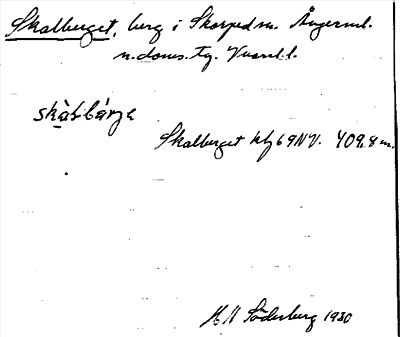 Skalberget, berg i Skorped sn. Ångerml.
n. doms. tg.
skàl-bárja
Skalberget kbl 69NV. 409.8 m.
H Söderberg 1930